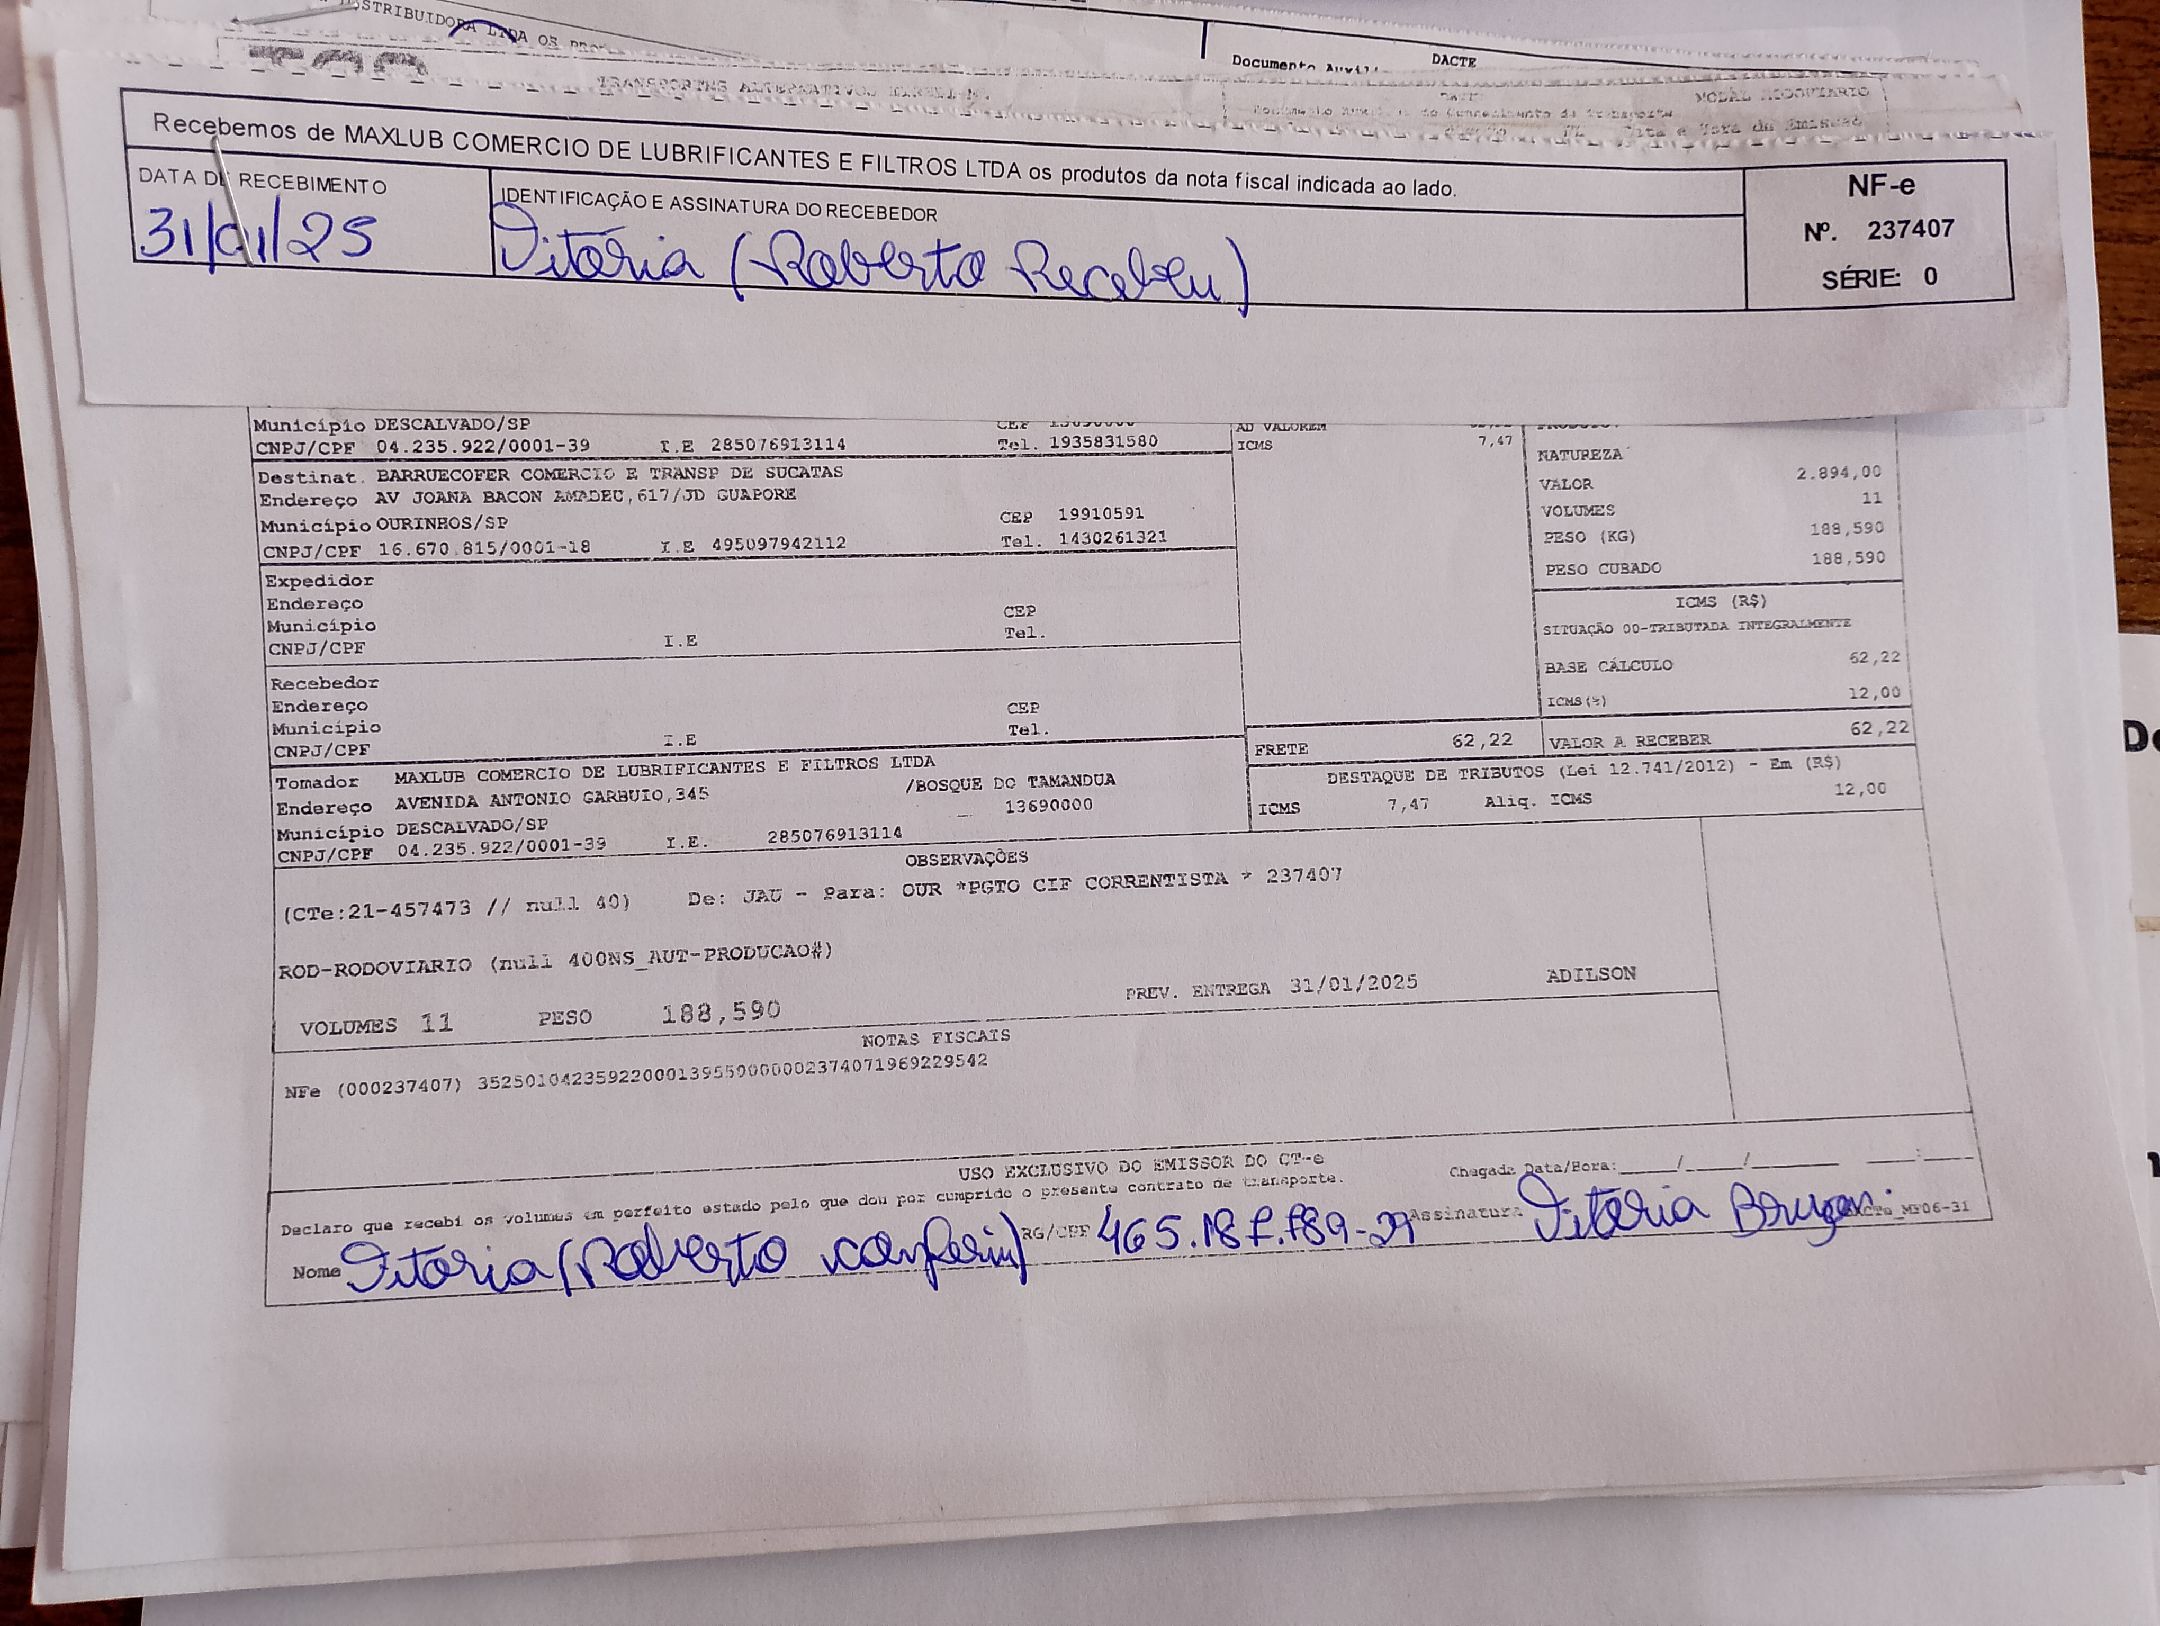 DISTRIBUIDORA LTDA OS
DACTE
TRANSPORTES ALTERNATIVOS
MODAL RODOVIARIO
Documento Auxiliar do Conhecimento de Transporte
Data e Hora de Emissão
Recebemos de MAXLUB COMERCIO DE LUBRIFICANTES E FILTROS LTDA os produtos da nota fiscal indicada ao lado.
NF-e
DATA DE RECEBIMENTO IDENTIFICAÇÃO E ASSINATURA DO RECEBEDOR
Nº. 237407
31/01/25 Vitória (Roberto Recebeu)
SÉRIE: 0
Município DESCALVADO/SP CEP 13690000 AD VALOREM
CNPJ/CPF 04.235.922/0001-39 I.E 285076913114 Tel. 1935831580 ICMS 7,47
Destinat. BARRUECOFER COMERCIO E TRANSP DE SUCATAS NATUREZA
Endereço AV JOANA BACON AMADEU,617/JD GUAPORE VALOR 2.894,00
Município OURINHOS/SP CEP 19910591 VOLUMES 11
CNPJ/CPF 16.670.815/0001-18 I.E 495097942112 Tel. 1430261321 PESO (KG) 188,590
PESO CUBADO 188,590
Expedidor
Endereço CEP ICMS (R$)
Município Tel. SITUAÇÃO 00-TRIBUTADA INTEGRALMENTE
CNPJ/CPF I.E
BASE CÁLCULO 62,22
Recebedor
Endereço CEP ICMS(%) 12,00
Município Tel.
CNPJ/CPF I.E FRETE 62,22 VALOR A RECEBER 62,22
Tomador MAXLUB COMERCIO DE LUBRIFICANTES E FILTROS LTDA DESTAQUE DE TRIBUTOS (Lei 12.741/2012) - Em (R$)
Endereço AVENIDA ANTONIO GARBUIO,345 /BOSQUE DO TAMANDUA
13690000 ICMS 7,47 Aliq. ICMS 12,00
Município DESCALVADO/SP
CNPJ/CPF 04.235.922/0001-39 I.E. 285076913114
OBSERVAÇÕES
(CTe:21-457473 // null 40) De: JAU - Para: OUR *PGTO CIF CORRENTISTA * 237407
ROD-RODOVIARIO (null 400NS_AUT-PRODUCAO#)
VOLUMES 11 PESO 188,590 PREV. ENTREGA 31/01/2025 ADILSON
NOTAS FISCAIS
NFe (000237407) 35250104235922000139550000002374071969229542
USO EXCLUSIVO DO EMISSOR DO CT-e
Declaro que recebi os volumes em perfeito estado pelo que dou por cumprido o presente contrato de transporte. Chegada Data/Hora:____/____/______ ____:____
Nome Vitória (Roberto RG/CPF Assinatura Vitória